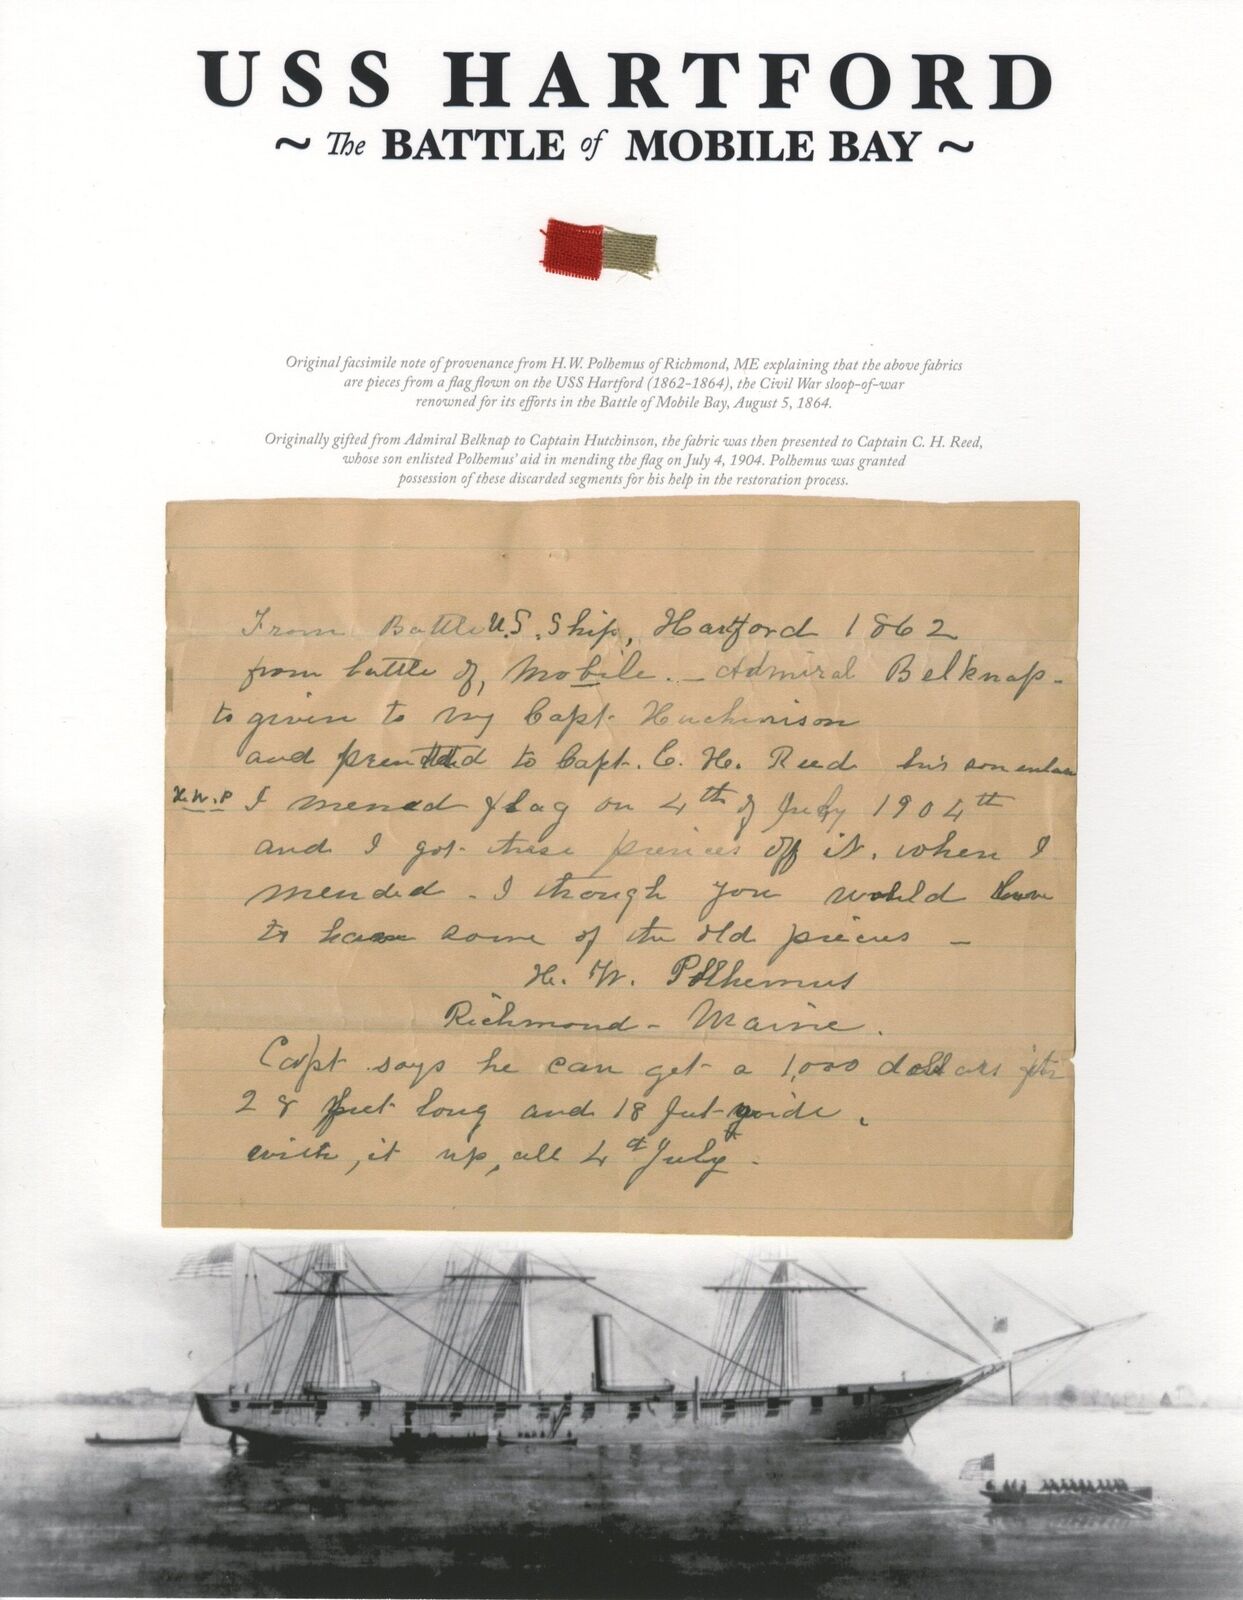 USS HARTFORD
~ The BATTLE of MOBILE BAY ~
Original facsimile note of provenance from H.W. Polhemus of Richmond, ME explaining that the above fabrics
are pieces from a flag flown on the USS Hartford (1862-1864), the Civil War sloop-of-war
renowned for its efforts in the Battle of Mobile Bay, August 5, 1864.
Originally gifted from Admiral Belknap to Captain Hutchinson, the fabric was then presented to Captain C. H. Reed,
whose son enlisted Polhemus' aid in mending the flag on July 4, 1904. Polhemus was granted
possession of these discarded segments for his help in the restoration process.
From Battle U.S. Ship, Hartford 1862
from battle of, Mobile. - Admiral Belknap -
to given to my Capt. Huchinison
and to Capt. C. H. Reed his son
H.W.P I mened flag on 4th of July 1904th
and I got these off it. when I
mended - I though you would
to have some of the old pieces -
H. W. Polhemus
Richmond - Maine.
Capt says he can get a 1,000 dollars
28 feet long and 18 feet wide.
with, it up, all 4th July -